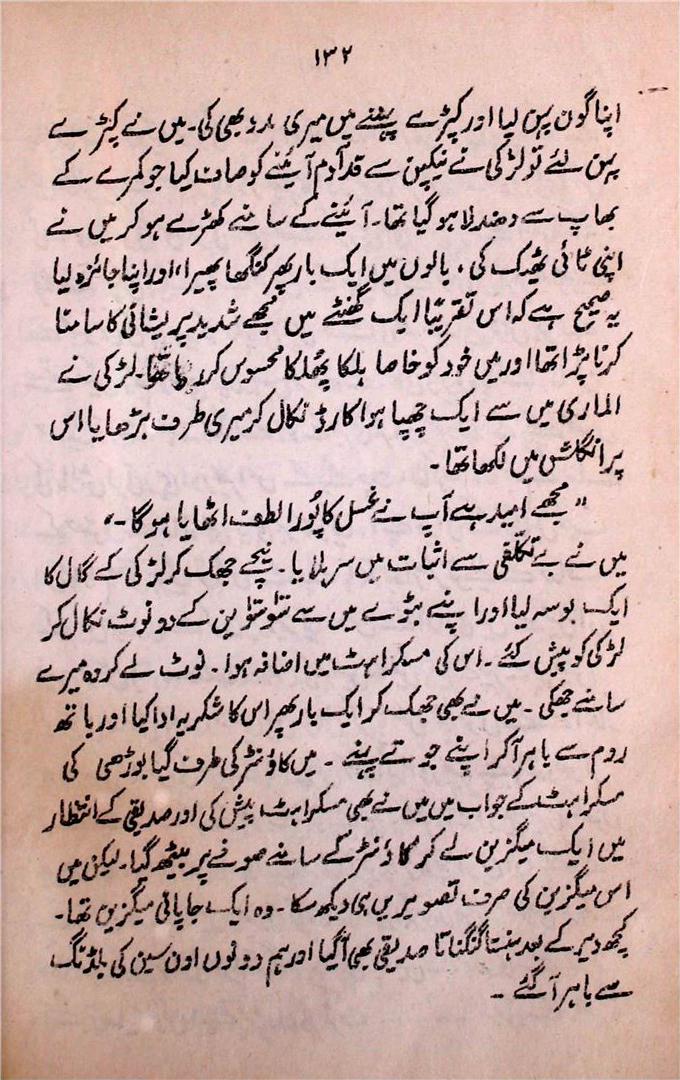 ۱۳۲
اپنا گون پہن لیا اور کپڑے پہننے میں میری مدد بھی کی۔ میں نے کپڑے
پہن لئے تو لڑکی نے نیپکن سے قد آدم آئینے کو صاف کیا جو کمرے کے
بھاپ سے دھندلا ہو گیا تھا۔ آئینے کے سامنے کھڑے ہو کر میں نے
اپنی ٹائی ٹھیک کی، بالوں میں ایک بار پھر کنگھا پھیرا، اور اپنا جائزہ لیا
یہ صحیح ہے کہ اس تقریباً ایک گھنٹے میں مجھے شدید پریشانی کا سامنا
کرنا پڑا تھا اور میں خود کو خاصا ہلکا پھلکا محسوس کر رہا تھا۔ لڑکی نے
الماری میں سے ایک چھپا ہوا کارڈ نکال کر میری طرف بڑھایا اس
پر انگلش میں لکھا تھا۔
"مجھے امید ہے آپ نے غسل کا پُورا لطف اٹھایا ہوگا۔"
میں نے بے تکلّفی سے اثبات میں سر ہلایا۔ نیچے جھک کر لڑکی کے گال کا
ایک بوسہ لیا اور اپنے بٹوے میں سے سَو سَو این کے دو نوٹ نکال کر
لڑکی کو پیش کئے۔ اس کی مسکراہٹ میں اضافہ ہوا۔ نوٹ لے کر وہ میرے
سامنے جھکی۔ میں نے بھی جھک کر ایک بار پھر اس کا شکریہ ادا کیا اور باتھ
روم سے باہر آ کر اپنے جوتے پہنے۔ میں کاؤنٹر کی طرف گیا بوڑھی کی
مسکراہٹ کے جواب میں میں نے بھی مسکراہٹ پیش کی اور صدیقی کے انتظار
میں ایک میگزین لے کر کاؤنٹر کے سامنے صوفے پر بیٹھ گیا۔ لیکن میں
اس میگزین کی صرف تصویریں ہی دیکھ سکا۔ وہ ایک جاپانی میگزین تھا۔
کچھ دیر کے بعد ہنستا گنگناتا صدیقی بھی آ گیا اور ہم دونوں اون سین کی بلڈنگ
سے باہر آ گئے۔